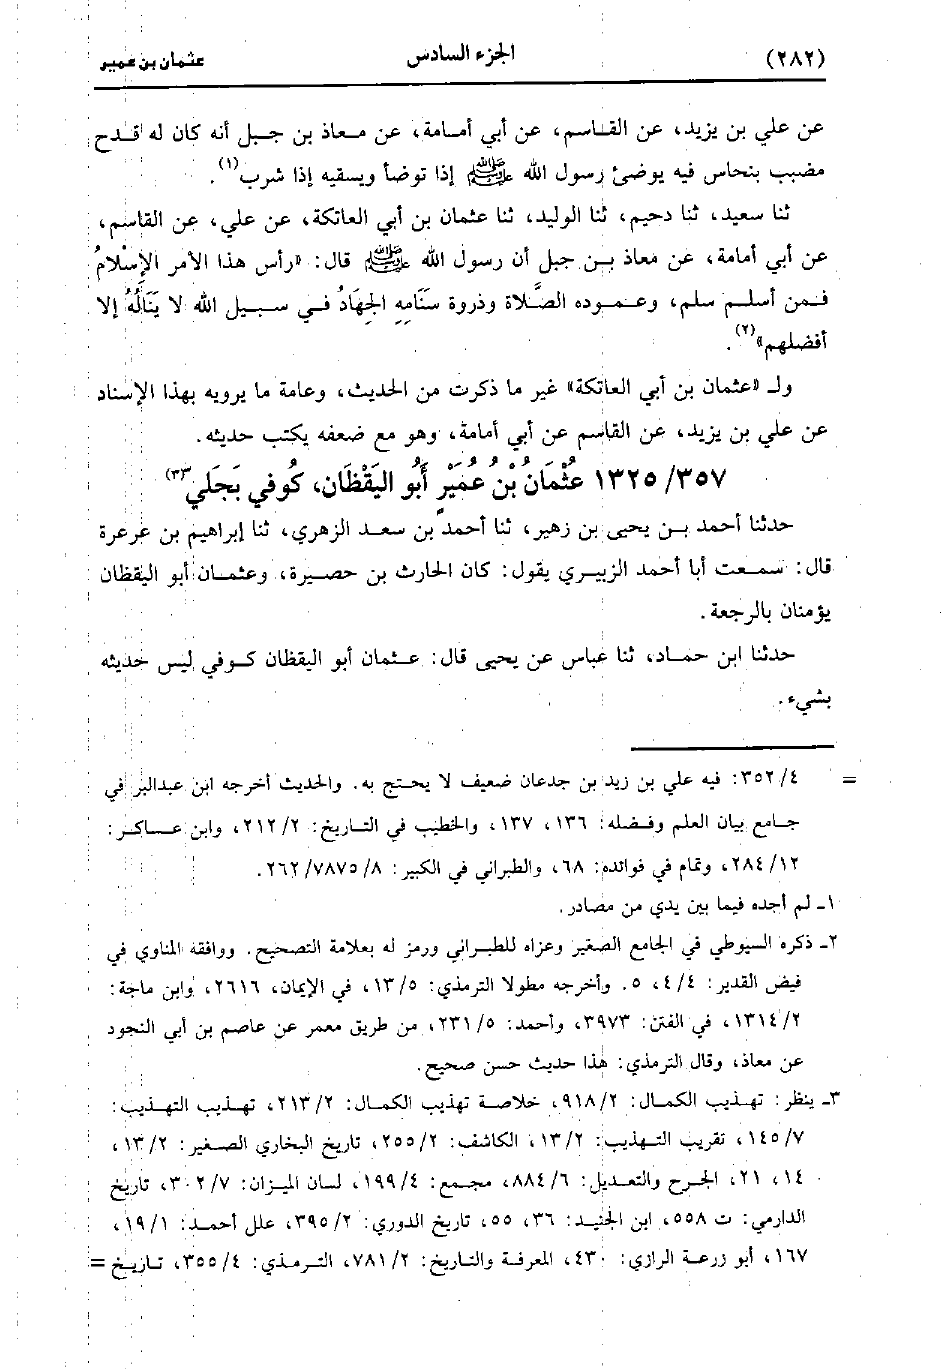 (٢٨٢) الجزء السادس عثمان بن عمير
عن علي بن يزيد، عن القاسم، عن أبي أمامة، عن معاذ بن جبل أنه كان له قدح
مضبب بنحاس فيه يوضئ رسول الله ﷺ إذا توضأ ويسقيه إذا شرب(١).
ثنا سعيد، ثنا دحيم، ثنا الوليد، ثنا عثمان بن أبي العاتكة، عن علي، عن القاسم،
عن أبي أمامة، عن معاذ بن جبل أن رسول الله ﷺ قال: «رأس هذا الأمر الإِسْلَامُ
فمن أسلم سلم، وعموده الصَّلاة وذروة سَنَامِهِ الجِهَادُ في سبيل الله لا يَنَالُهُ إلا
أفضلهم»(٢).
ولـ «عثمان بن أبي العاتكة» غير ما ذكرت من الحديث، وعامة ما يرويه بهذا الإسناد
عن علي بن يزيد، عن القاسم عن أبي أمامة، وهو مع ضعفه يكتب حديثه.
١٣٢٥/٣٥٧ عُثْمَانُ بْنُ عُمَيْرٍ أَبُو اليَقْظَان، كُوفي بَجَلي(٣)
حدثنا أحمد بن يحيى بن زهير، ثنا أحمد بن سعد الزهري، ثنا إبراهيم بن عرعرة
قال: سمعت أبا أحمد الزبيري يقول: كان الحارث بن حصيرة، وعثمان أبو اليقظان
يؤمنان بالرجعة.
حدثنا ابن حماد، ثنا عباس عن يحيى قال: عثمان أبو اليقظان كوفي ليس حديثه
بشيء.
= ٣٥٢/٤: فيه علي بن زيد بن جدعان ضعيف لا يحتج به. والحديث أخرجه ابن عبدالبر في
جامع بيان العلم وفضله: ١٣٦، ١٣٧، والخطيب في التاريخ: ٢١٢/٢، وابن عساكر:
٢٨٤/١٢، وتمام في فوائده: ٦٨، والطبراني في الكبير: ٢٦٢/٧٨٧٥/٨.
١ـ لم أجده فيما بين يدي من مصادر.
٢ـ ذكره السيوطي في الجامع الصغير وعزاه للطبراني ورمز له بعلامة التصحيح. ووافقه المناوي في
فيض القدير: ٤/٤، ٥. وأخرجه مطولا الترمذي: ١٣/٥، في الإيمان، ٢٦١٦، وابن ماجة:
١٣١٤/٢، في الفتن: ٣٩٧٣، وأحمد: ٢٣١/٥، من طريق معمر عن عاصم بن أبي النجود
عن معاذ، وقال الترمذي: هذا حديث حسن صحيح.
٣ـ ينظر: تهذيب الكمال: ٩١٨/٢، خلاصة تهذيب الكمال: ٢١٣/٢، تهذيب التهذيب:
١٤٥/٧، تقريب التهذيب: ١٣/٢، الكاشف: ٢٥٥/٢، تاريخ البخاري الصغير: ١٣/٢،
١٤، ٢١، الجرح والتعديل: ٨٨٤/٦، مجمع: ١٩٩/٤، لسان الميزان: ٣٠٢/٧، تاريخ
الدارمي: ت ٥٥٨، ابن الجنيد: ٣٦، ٥٥، تاريخ الدوري: ٣٩٥/٢، علل أحمد: ١٩/١،
١٦٧، أبو زرعة الرازي: ٤٣٠، المعرفة والتاريخ: ٧٨١/٢، الترمذي: ٣٥٥/٤، تاريخ =